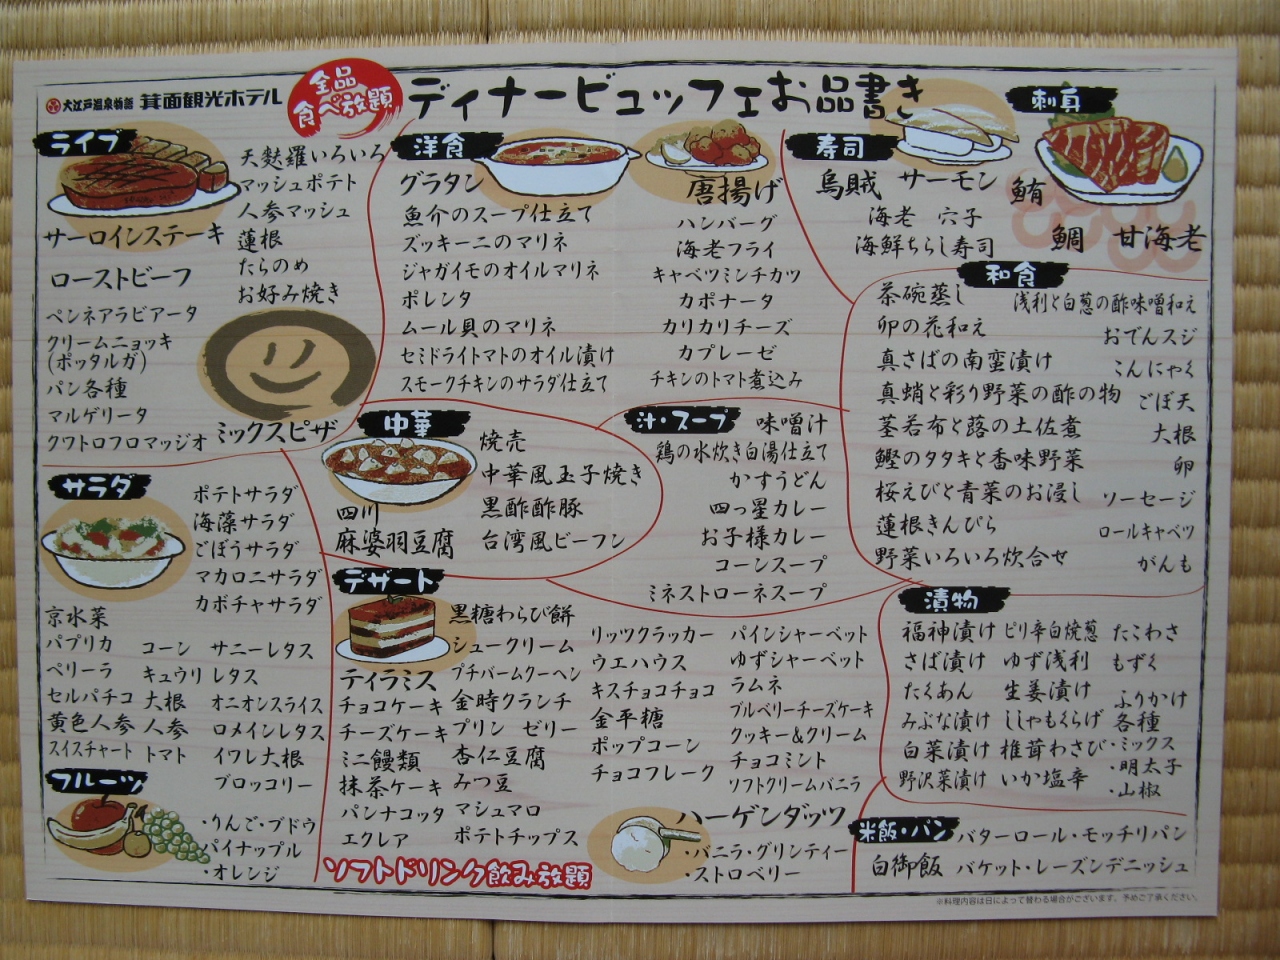 大江戸温泉物語 箕面観光ホテル
全品
食べ放題
ディナービュッフェお品書き
ライブ
天麩羅いろいろ
マッシュポテト
人参マッシュ
蓮根
たらのめ
お好み焼き
サーロインステーキ
ローストビーフ
ペンネアラビアータ
クリームニョッキ
(ポッタルガ)
パン各種
マルゲリータ
クワトロフロマッジオ
ミックスピザ
洋食
グラタン
魚介のスープ仕立て
ズッキーニのマリネ
ジャガイモのオイルマリネ
ポレンタ
ムール貝のマリネ
セミドライトマトのオイル漬け
スモークチキンのサラダ仕立て
唐揚げ
ハンバーグ
海老フライ
キャベツミンチカツ
カポナータ
カリカリチーズ
カプレーゼ
チキンのトマト煮込み
寿司
烏賊 サーモン
海老 穴子
海鮮ちらし寿司
刺身
鮪
鯛 甘海老
和食
茶碗蒸し
卯の花和え
真さばの南蛮漬け
真蛸と彩り野菜の酢の物
茎若布と蕗の土佐煮
鰹のタタキと香味野菜
桜えびと青菜のお浸し
蓮根きんぴら
野菜いろいろ炊合せ
浅利と白葱の酢味噌和え
おでんスジ
こんにゃく
ごぼ天
大根
卵
ソーセージ
ロールキャベツ
がんも
中華
焼売
中華風玉子焼き
黒酢酢豚
台湾風ビーフン
四川
麻婆羽豆腐
汁・スープ
味噌汁
鶏の水炊き白湯仕立て
かすうどん
四っ星カレー
お子様カレー
コーンスープ
ミネストローネスープ
サラダ
ポテトサラダ
海藻サラダ
ごぼうサラダ
マカロニサラダ
カボチャサラダ
京水菜
パプリカ
ペリーラ
セルパチコ
黄色人参
スイスチャート
コーン
キュウリ
大根
人参
トマト
サニーレタス
レタス
オニオンスライス
ロメインレタス
イワレ大根
ブロッコリー
フルーツ
・りんご・ブドウ
パイナップル
・オレンジ
デザート
ティラミス
チョコケーキ
チーズケーキ
ミニ饅類
抹茶ケーキ
パンナコッタ
エクレア
黒糖わらび餅
シュークリーム
プチバームクーヘン
金時クランチ
プリン ゼリー
杏仁豆腐
みつ豆
マシュマロ
ポテトチップス
リッツクラッカー
ウエハウス
キスチョコチョコ
金平糖
ポップコーン
チョコフレーク
パインシャーベット
ゆずシャーベット
ラムネ
ブルベリーチーズケーキ
クッキー&クリーム
チョコミント
ソフトクリームバニラ
ハーゲンダッツ
・バニラ・グリンティー
・ストロベリー
ソフトドリンク飲み放題
漬物
福神漬け
さば漬け
たくあん
みぶな漬け
白菜漬け
野沢菜漬け
ピリ辛白焼葱
ゆず浅利
生姜漬け
ししゃもくらげ
椎茸わさび
いか塩辛
たこわさ
もずく
ふりかけ
各種
・ミックス
・明太子
・山椒
米飯・パン
バターロール・モッチリパン
白御飯 バケット・レーズンデニッシュ
※料理内容は日によって替わる場合がございます。予めご了承ください。